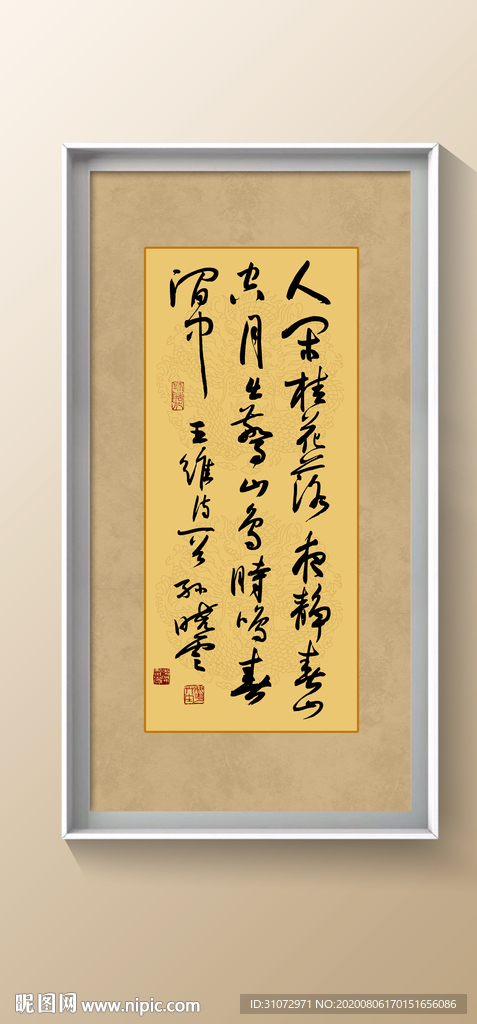 人闲桂花落夜静春山
空月出惊山鸟時鸣春
涧中
王维诗一首 孙晓云
昵图网 www.nipic.com
ID:31072971 NO:20200806170151656086